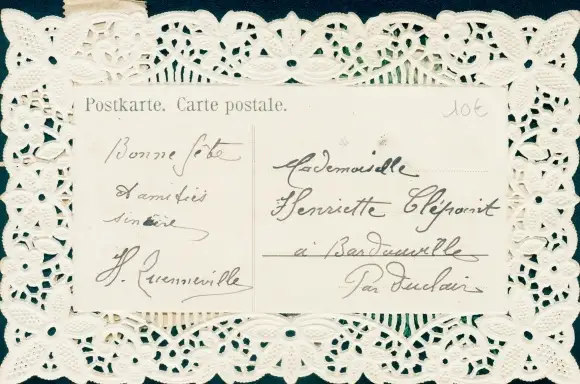 Postkarte. Carte postale.
10€
Bonne fête
d'amitiés
sincère
H. Quenneville
Mademoiselle
Henriette Clépoint
à Bardouville
Par Duclair